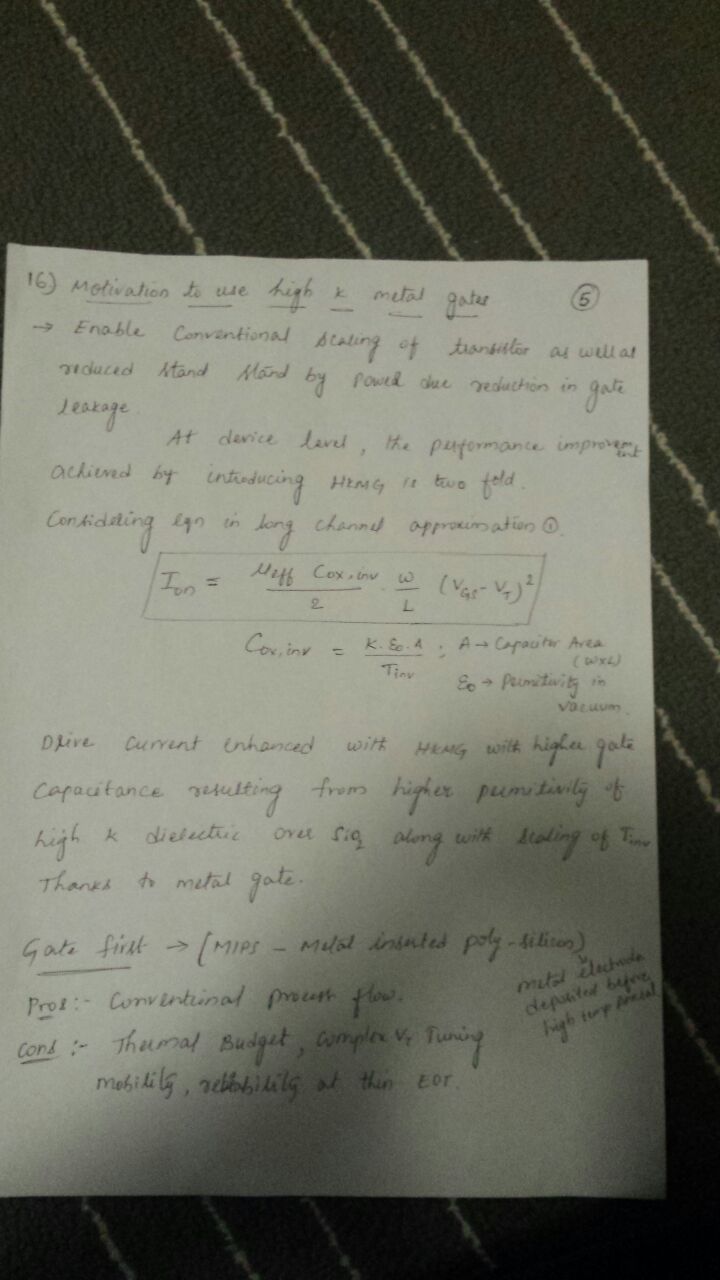 16) Motivation to use high k metal gates ⑤
→ Enable Conventional scaling of transistor as well as
reduced stand stand by power due reduction in gate
leakage.
At device level, the performance improvement
achieved by introducing HKMG is two fold.
Considering eqn in long channel approximation ①.
I_on = μ_eff Cox,inv / 2 . W / L (V_GS - V_T)^2
Cox,inv = K.ε₀.A / T_inv ; A → Capacitor Area
(WxL)
ε₀ → Permitivity in
vacuum.
Drive current enhanced with HKMG with higher gate
Capacitance resulting from higher permitivity of
high k dielectric over SiO₂ along with scaling of T_inv
Thanks to metal gate.
Gate first → (MIPS - Metal inserted poly-silicon)
metal electrode
deposited before
high temp Anneal
Pros:- Conventional process flow.
Cons:- Thermal Budget, Complex V_T Tuning
mobility, reliability at thin EOT.